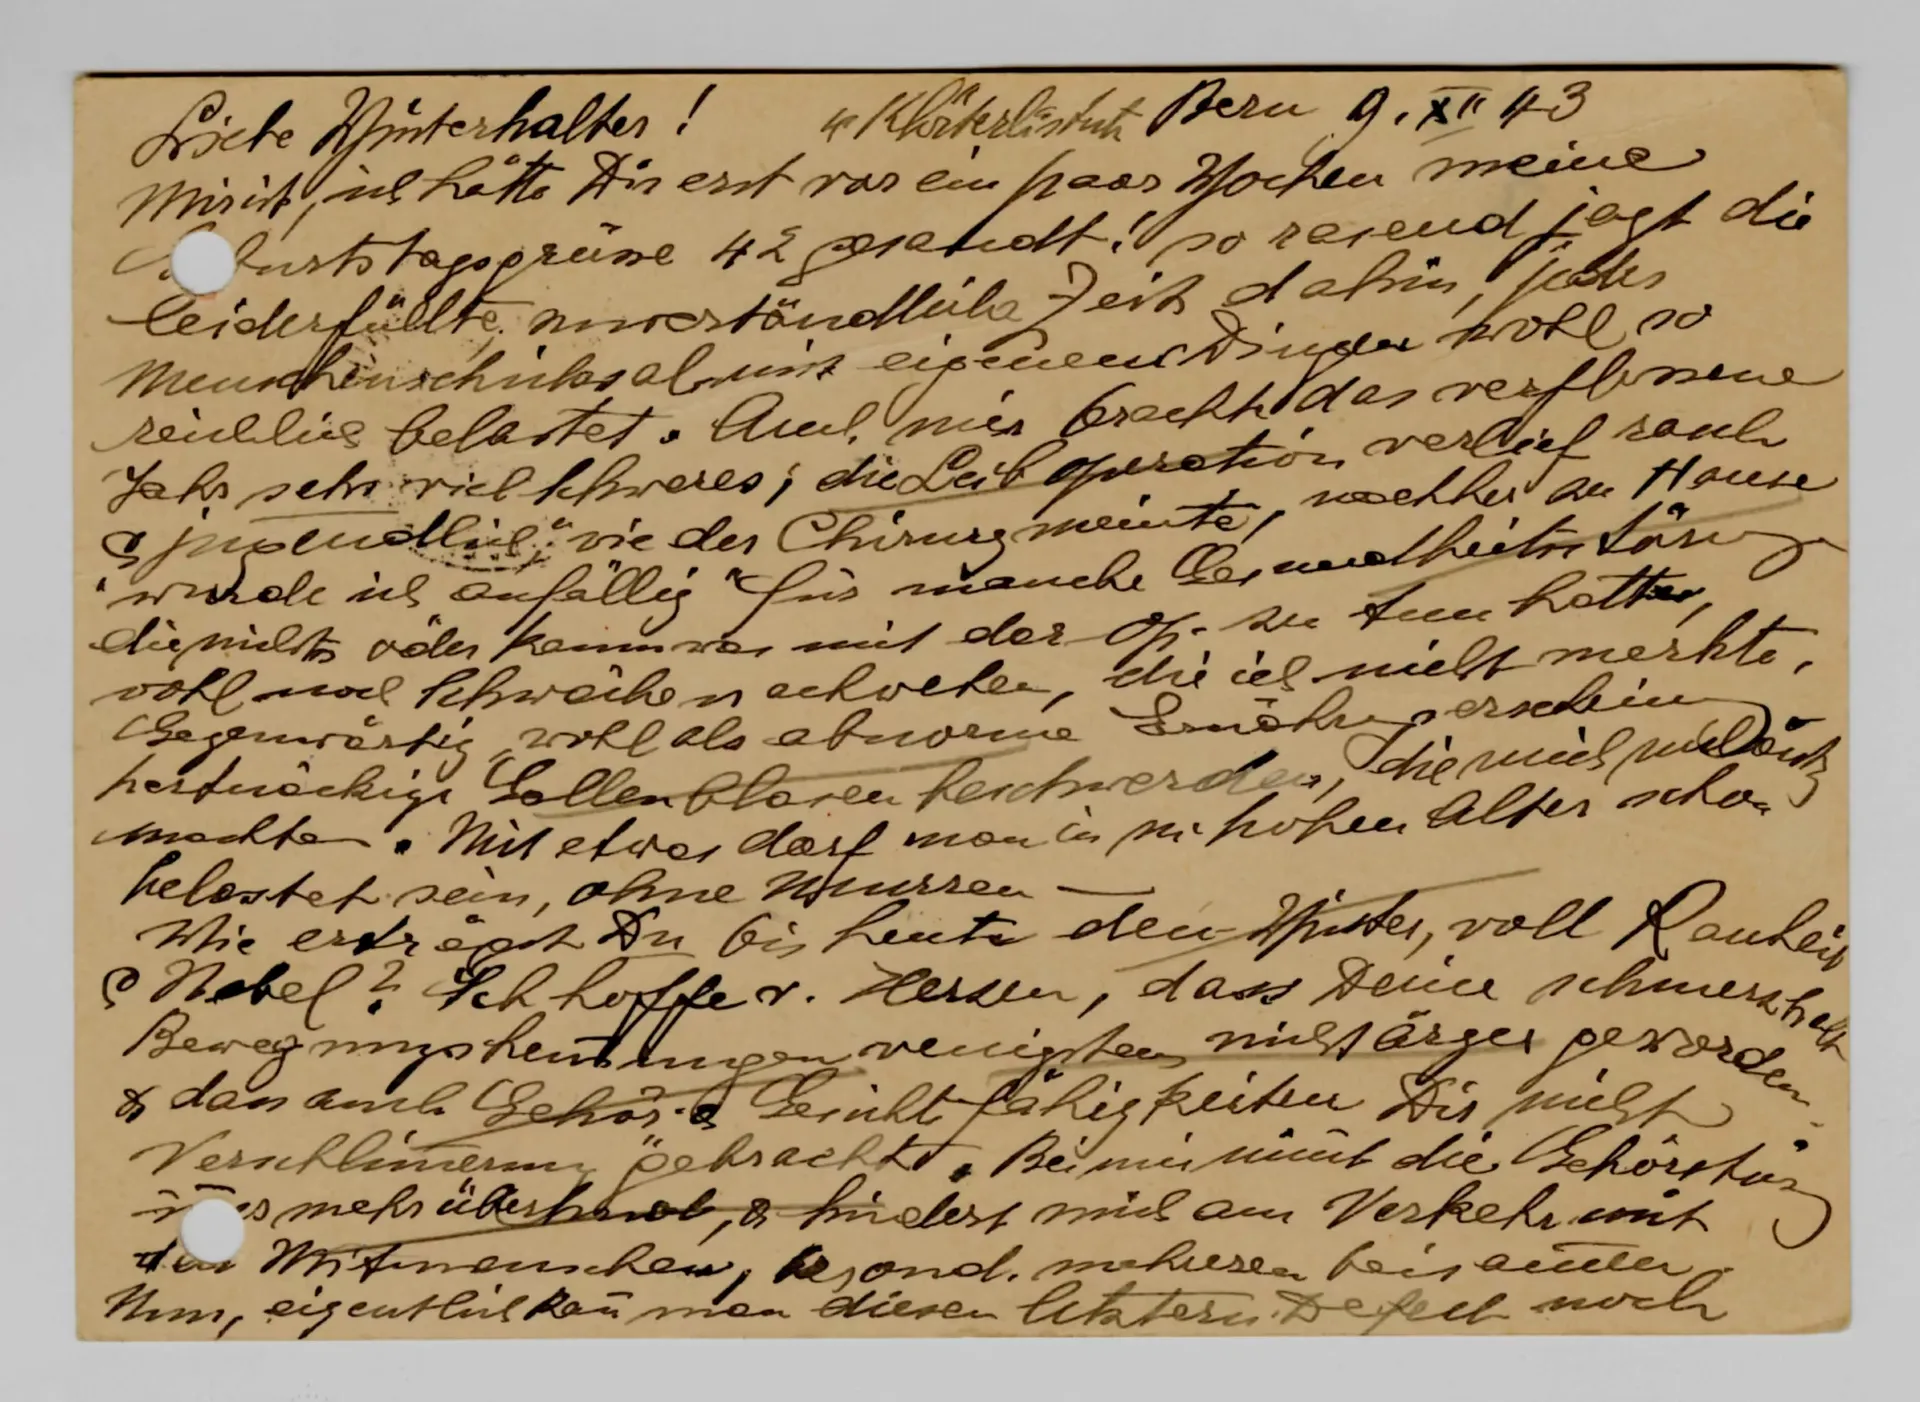 Liebe Winterhalter! Bern 9. XII 43
Mir ist, ich hätte Dir erst vor ein paar Wochen meine
burtstagsgrüsse 42 gesandt! so rasend jagt die
leiderfüllte, unverständliche Zeit dahin, jedes
Menschenschicksal mit eigenen Dingen wohl so
reichlich belastet. Auch mir brachte das verflossene
Jahr sehr viel Schweres; die Leiboperation verlief rasch
& "jugendlich", wie der Chirurg meinte, nachher zu Hause
"wurde ich anfällig" für manche Gesundheitsstörungen
die nichts oder kaum was mit der Op. zu tun hatten,
wohl noch Schwächen, die ich nicht merkte.
Gegenwärtig, wohl als abnorme Ernährgserschein
hartnäckige Gallenblasenbeschwerden, die mich
machten. Mit etwas darf man in m. hohen Alter schon
belastet sein, ohne Murren —
Wie erträgst Du bis heute den Winter, voll Rauheit
& Nebel? Ich hoffe v. Herzen, dass Deine schmerzhaft
Bewegungshemmungen wenigstens nicht ärger geworden
& dass auch Gehör- & Gesichtsfähigkeiten Dir nicht
Verschlimerung gebracht. Bei mir nimt die Gehörstörg
mehr überhand, & hindert mich am Verkehr mit
den Mitmenschen, besond. mehreren beisammen.
Nun, eigentlich kan̄ man diesen letztern Defect noch